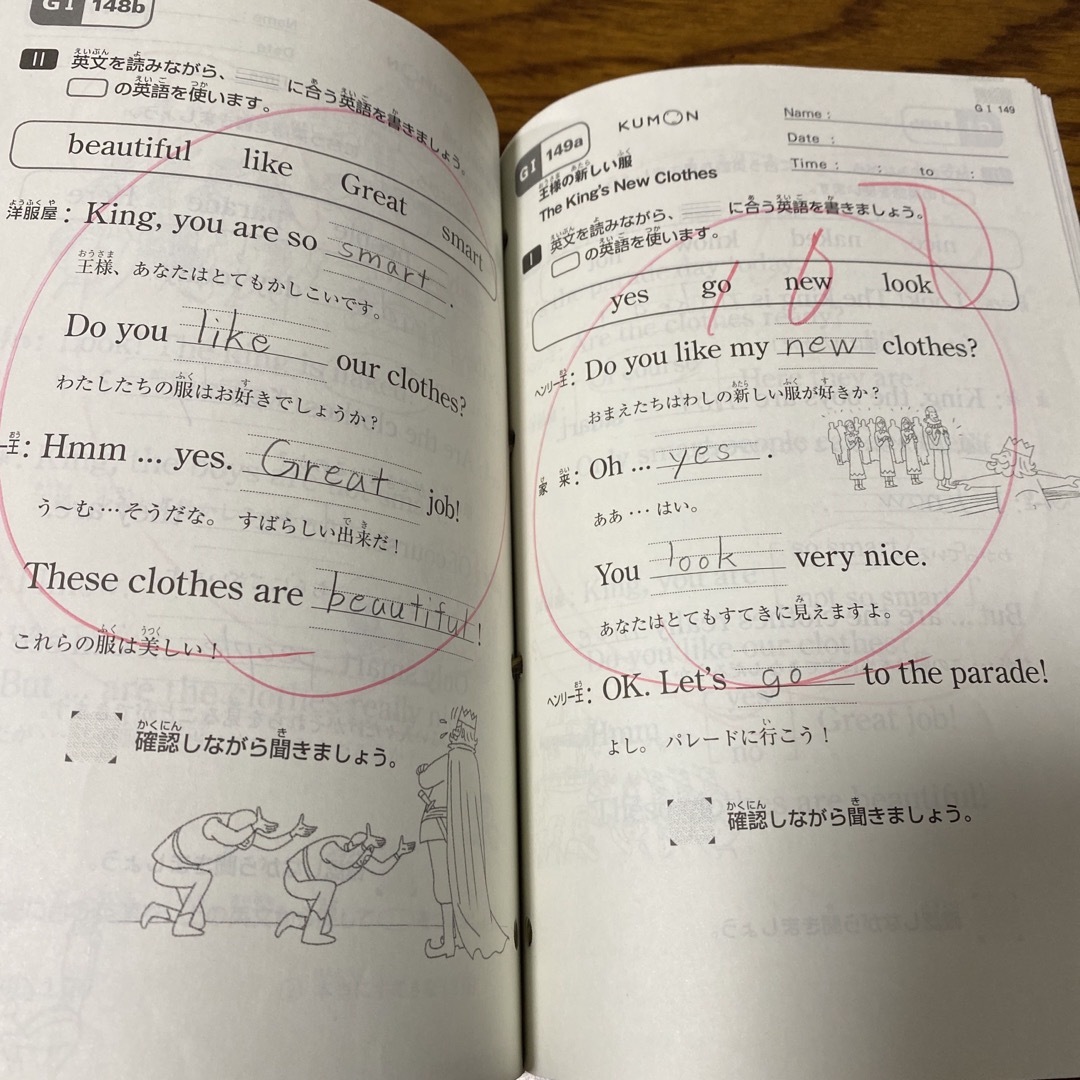 GI 148b
II 英文を読みながら、に合う英語を書きましょう。
の英語を使います。
beautiful like Great smart
洋服屋: King, you are so smart.
王様、あなたはとてもかしこいです。
Do you like our clothes?
わたしたちの服はお好きでしょうか?
王: Hmm ... yes. Great job!
う~む…そうだな。 すばらしい出来だ!
These clothes are beautiful!
これらの服は美しい!
確認しながら聞きましょう。
GI 149
KUMON
Name :
Date :
Time : : to :
GI 149a
王様の新しい服
The King's New Clothes
100
I 英文を読みながら、に合う英語を書きましょう。
の英語を使います。
yes go new look
ヘンリー王: Do you like my new clothes?
おまえたちはわしの新しい服が好きか?
家来: Oh ... yes.
ああ…はい。
You look very nice.
あなたはとてもすてきに見えますよ。
ヘンリー王: OK. Let's go to the parade!
よし。 パレードに行こう!
確認しながら聞きましょう。